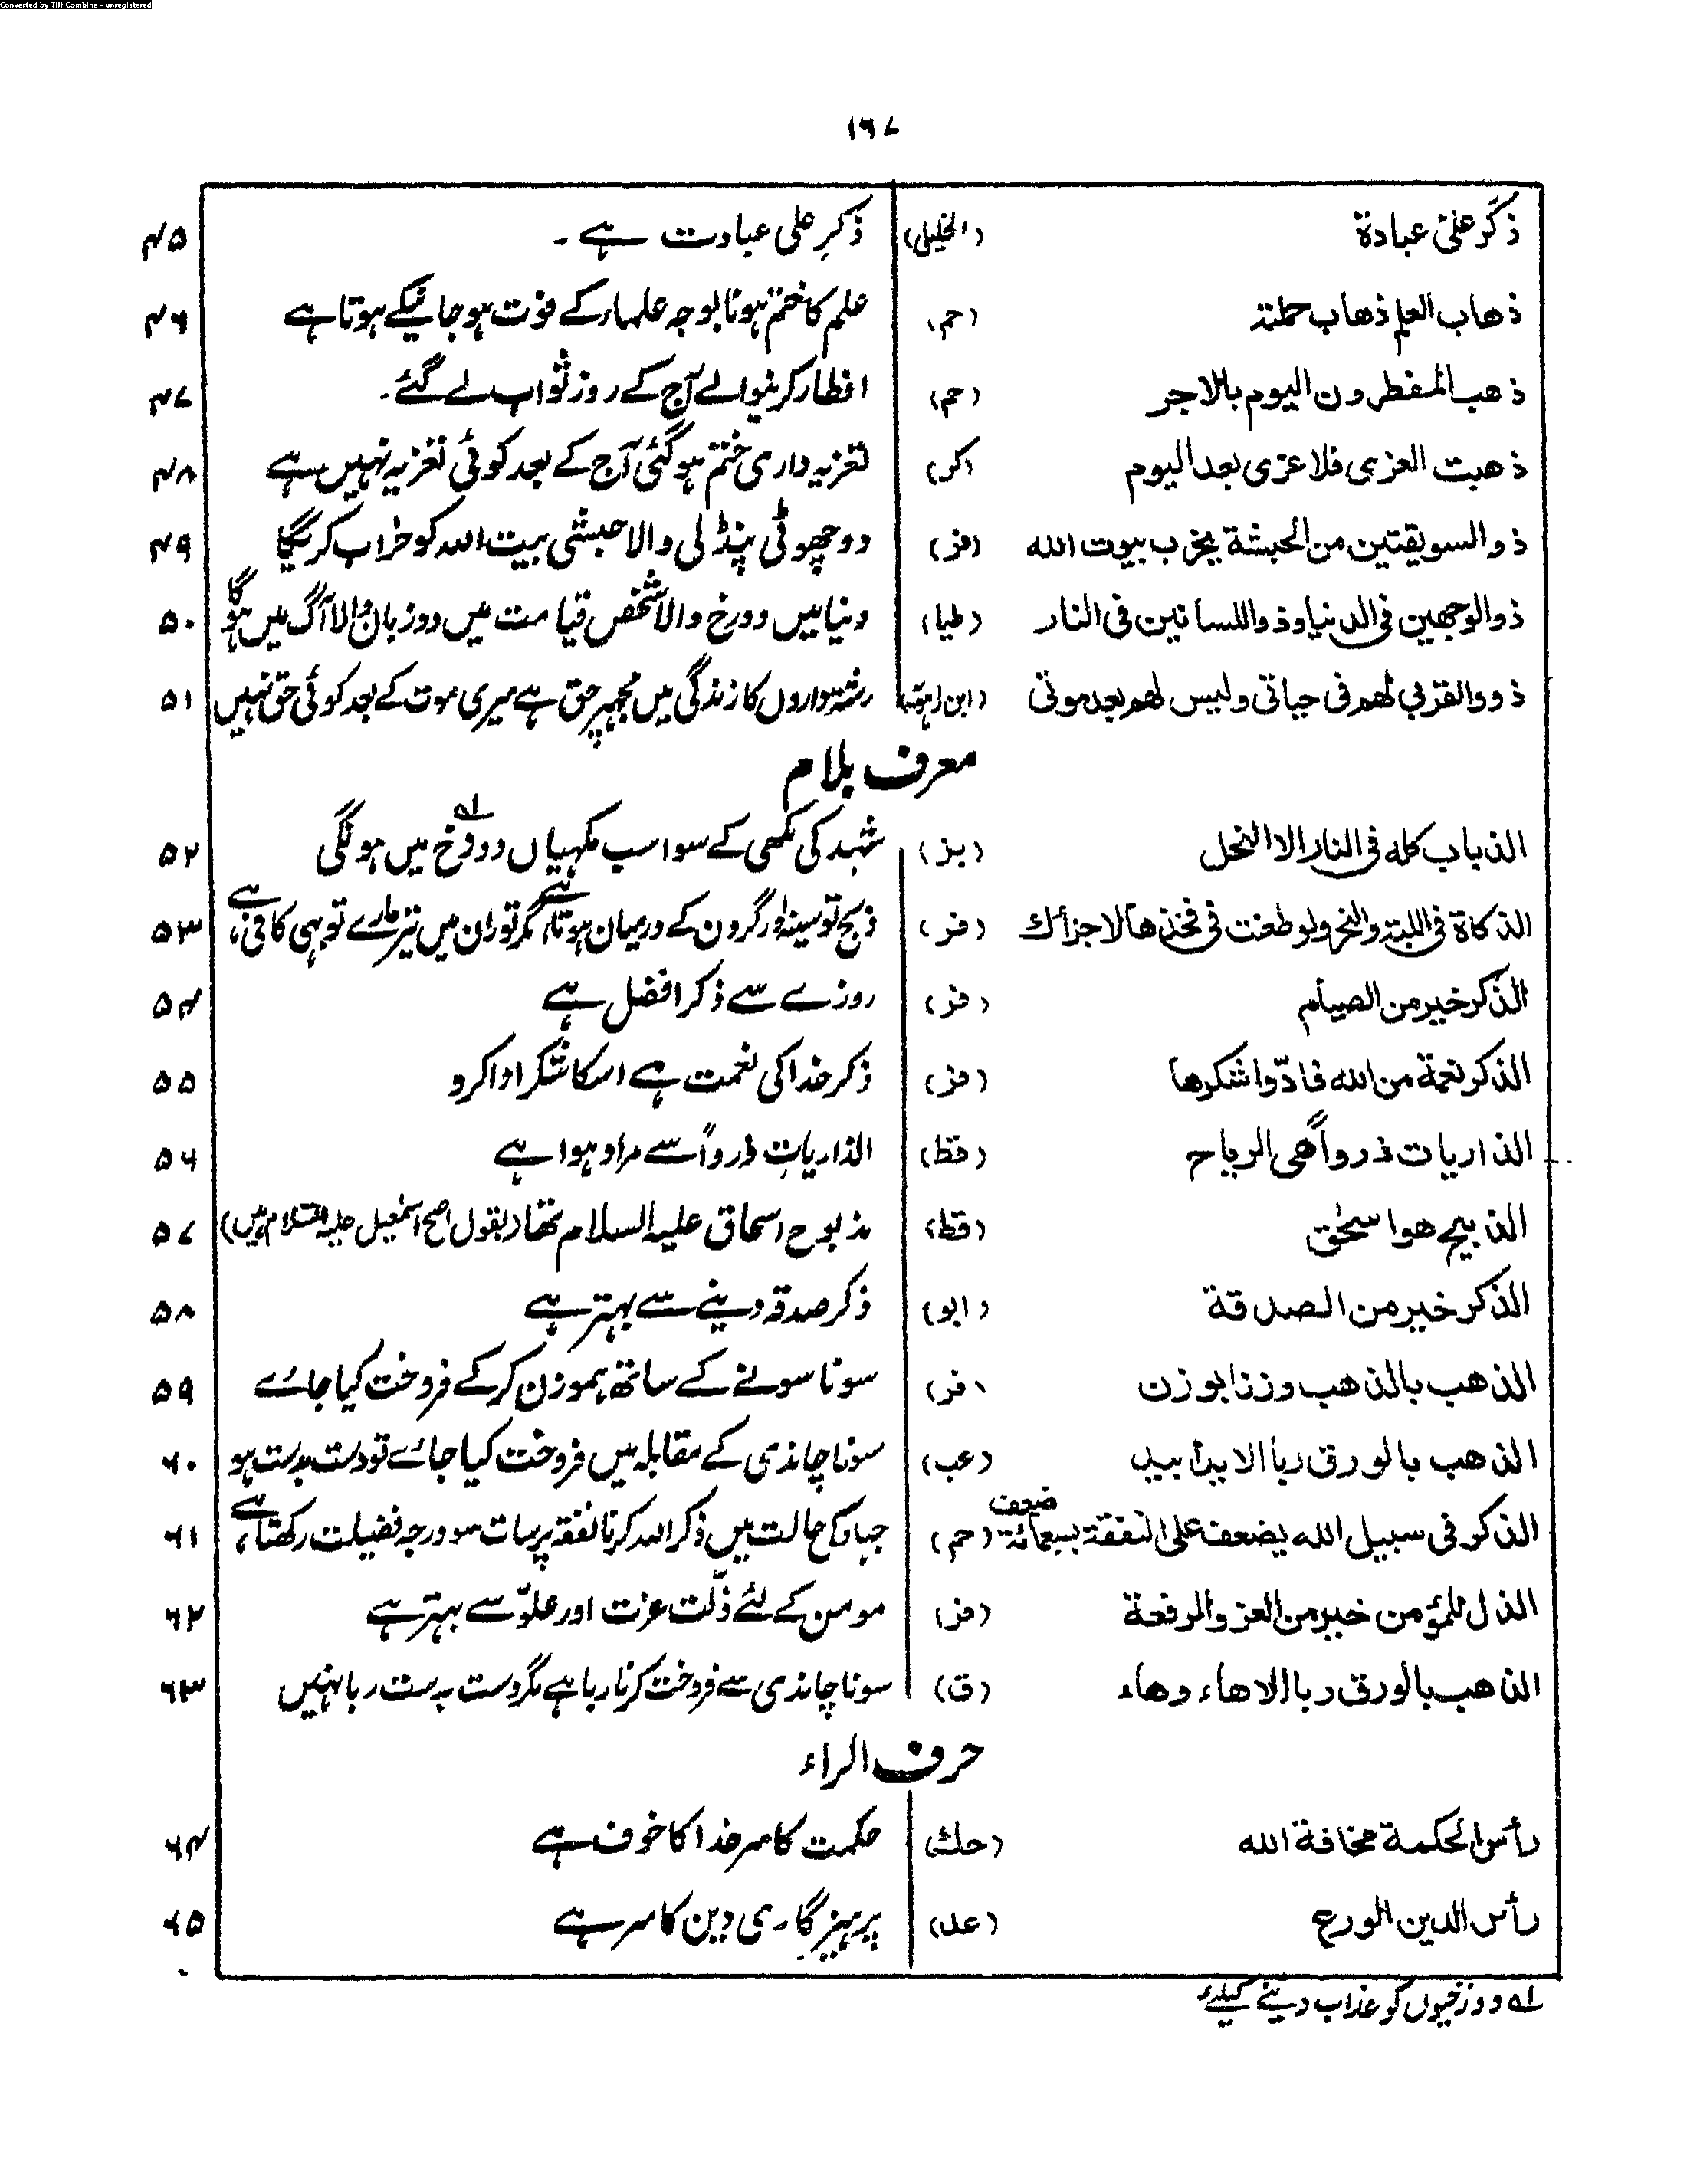 Converted by Tiff Combine - unregistered
۱۶۷
ذکر علیّ عبادة (الخلیلی) ذکرِ علی عبادت ہے۔ ۴۵
ذهاب العلم ذهاب حملته (حم) علم کا ختم ہونا بوجہ علماء کے فوت ہو جانیکے ہوتا ہے ۴۶
ذهب المفطرون الیوم بالاجر (حم) افطار کرنیوالے آج کے روز ثواب لے گئے۔ ۴۷
ذهبت العزی فلا عزی بعد الیوم (کر) تعزیہ داری ختم ہو گئی آج کے بعد کوئی تعزیہ نہیں ہے ۴۸
ذو السویقتین من الحبشة یخرب بیوت الله (فر) دو چھوٹی پنڈلی والا حبشی بیت اللہ کو خراب کریگا ۴۹
ذو الوجهین فی الدنیا وذو اللسانین فی النار (طیا) دنیا میں دورخ والا شخص قیامت میں دو زبان والا آگ میں ہوگا ۵۰
ذوو القربی لهم فی حیاتی ولیس لهم بعد موتی (ابن راہویہ) رشتہ داروں کا زندگی میں مجھپر حق ہے میری موت کے بعد کوئی حق نہیں ۵۱
معرف بلام
الذباب کله فی النار الا النحل (بز) شہد کی مکھی کے سوا سب مکھیاں دوزخ میں ہونگی ۵۲
الذکاة فی اللبة والنحر ولو طعنت فی فخذها لاجزأك (فر) ذبح تو سینہ اور گردن کے درمیان ہوتا ہے مگر تو ران میں تیر مارے تو بھی کافی ہے، ۵۳
الذکر خیر من الصیام (فر) روزے سے ذکر افضل ہے ۵۴
الذکر نعمة من الله فادّوا شکرها (فر) ذکر خدا کی نعمت ہے اسکا شکر ادا کرو ۵۵
الذاریات ذرواً هی الریاح (قط) الذاریات ذرواً سے مراد ہوا ہے ۵۶
الذبیح هو اسحٰق (قط) مذبوح اسحاق علیہ السلام تھا (بقول اصح اسمٰعیل علیہ السلام ہیں) ۵۷
الذکر خیر من الصدقة (ابو) ذکر صدقہ دینے سے بہتر ہے ۵۸
الذهب بالذهب وزنا بوزن (فر) سونا سونے کے ساتھ ہموزن کر کے فروخت کیا جائے ۵۹
الذهب بالورق ربا الا یدا بید (عب) سونا چاندی کے مقابلہ میں فروخت کیا جائے تو دست بدست ہو ۶۰
الذکر فی سبیل الله یضعف علی النفقة بسبعمائة ضعف (حم) جہاد کی حالت میں ذکر اللہ کرنا نفقہ پر سات سو درجہ فضیلت رکھتا ہے، ۶۱
الذل للمؤمن خیر من العز والرفعة (فر) مومن کے لئے ذلّت عزت اور علوّ سے بہتر ہے ۶۲
الذهب بالورق ربا الا هاء وهاء (ق) سونا چاندی سے فروخت کرنا ربا ہے مگر دست بدست ربا نہیں ۶۳
حرف الراء
رأس الحکمة مخافة الله (حك) حکمت کا سر خدا کا خوف ہے ۶۴
رأس الدین الورع (عد) پرہیزگاری دین کا سر ہے ۶۵
لہ دوزخیوں کو عذاب دینے کیلئے